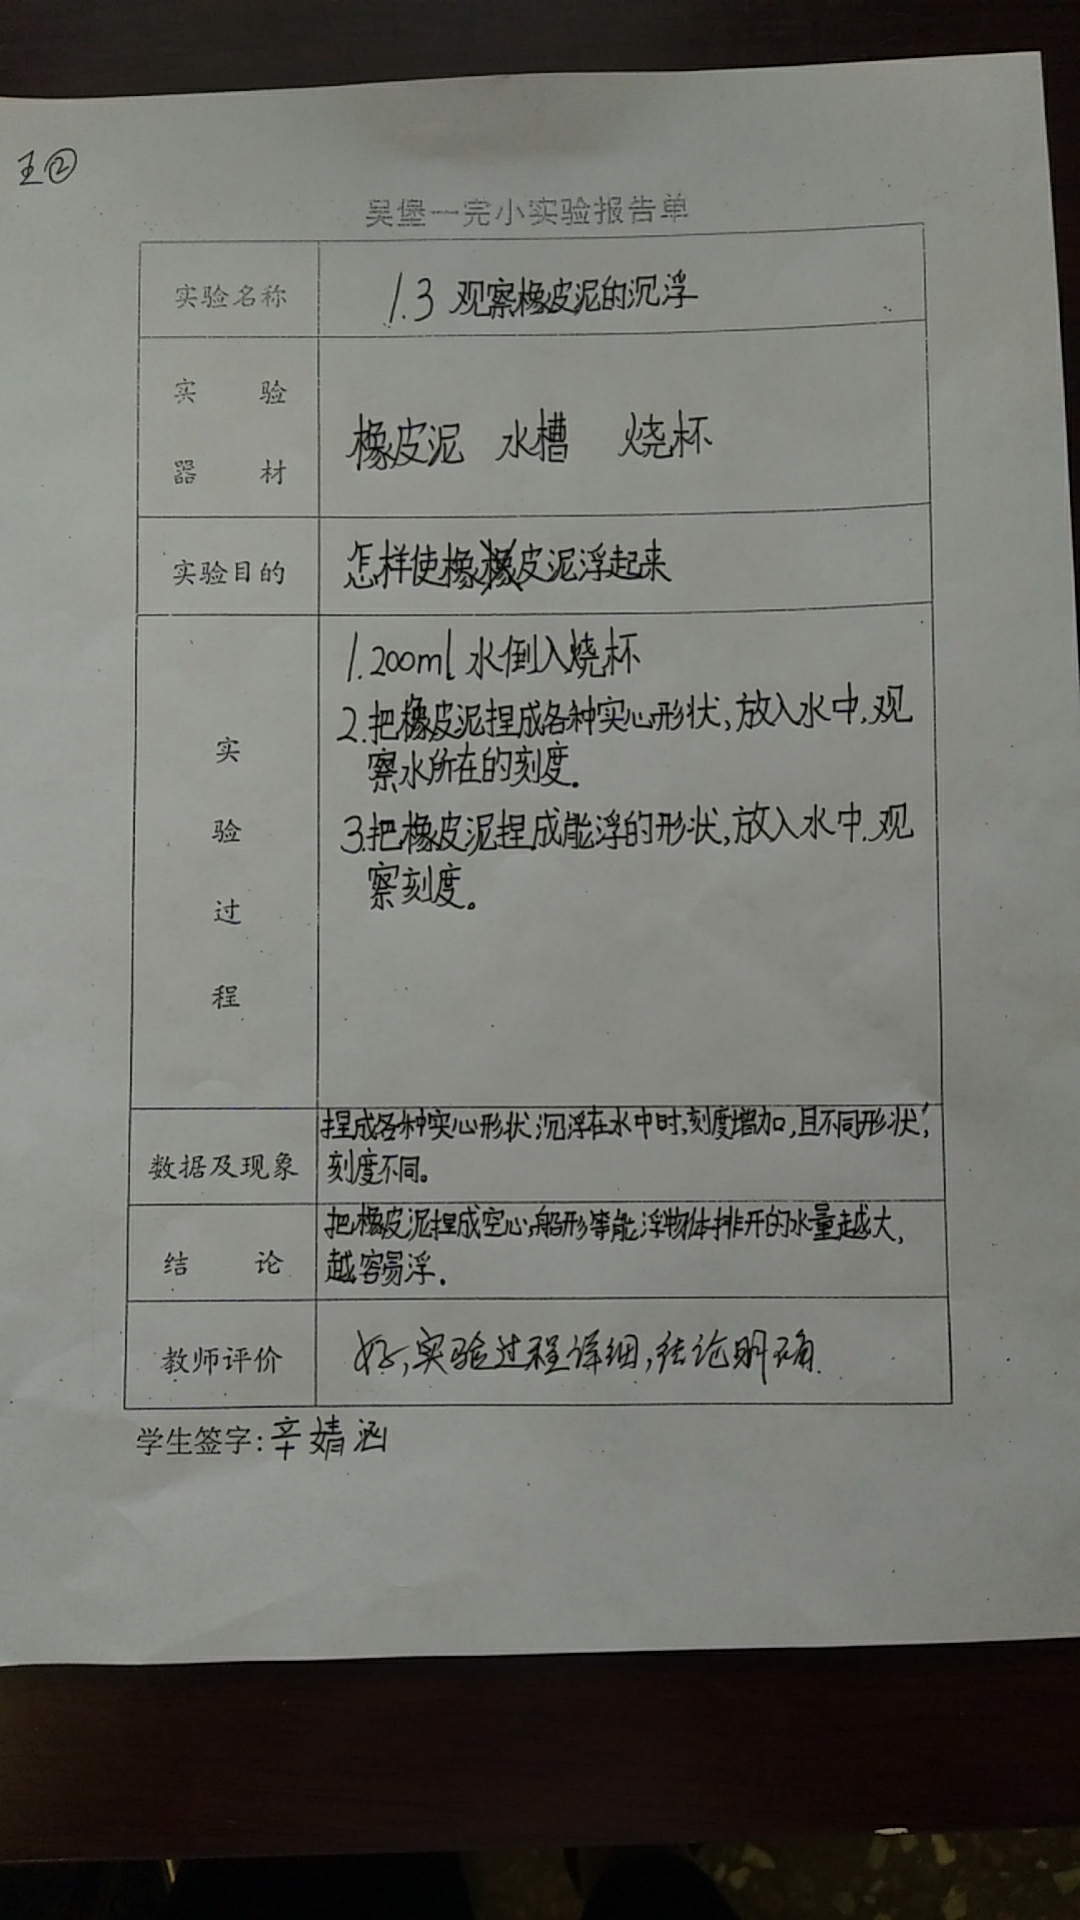 王②
吴堡一完小实验报告单
实验名称
1.3 观察橡皮泥的沉浮
实 验
器 材
橡皮泥 水槽 烧杯
实验目的
怎样使橡皮泥浮起来
实
验
过
程
1.200ml 水倒入烧杯
2.把橡皮泥捏成各种实心形状,放入水中,观
察水所在的刻度.
3.把橡皮泥捏成能浮的形状,放入水中,观
察刻度。
数据及现象
捏成各种实心形状沉浮在水中时,刻度增加,且不同形状,
刻度不同。
结 论
把橡皮泥捏成空心,船形等能浮物体排开的水量越大,
越容易浮.
教师评价
好,实验过程详细,结论明确.
学生签字:辛婧涵